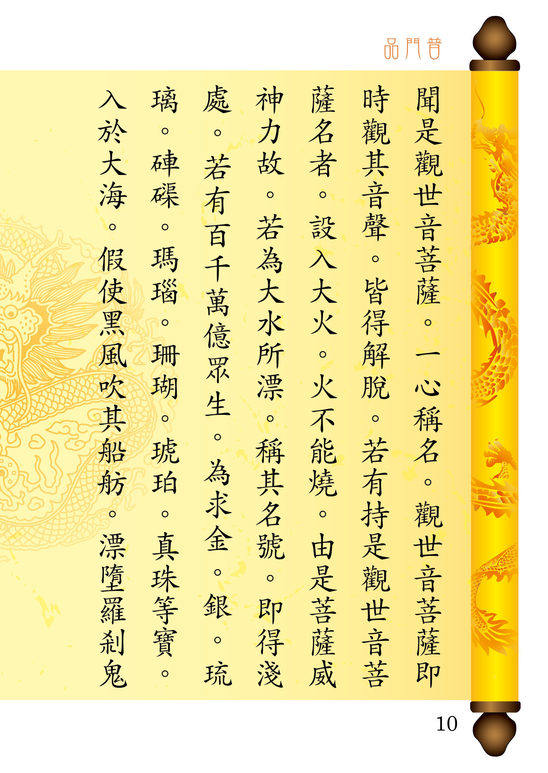 普門品
聞是觀世音菩薩。一心稱名。觀世音菩薩即
時觀其音聲。皆得解脫。若有持是觀世音菩
薩名者。設入大火。火不能燒。由是菩薩威
神力故。若為大水所漂。稱其名號。即得淺
處。若有百千萬億眾生。為求金。銀。琉
璃。硨磲。瑪瑙。珊瑚。琥珀。真珠等寶。
入於大海。假使黑風吹其船舫。漂墮羅剎鬼
10